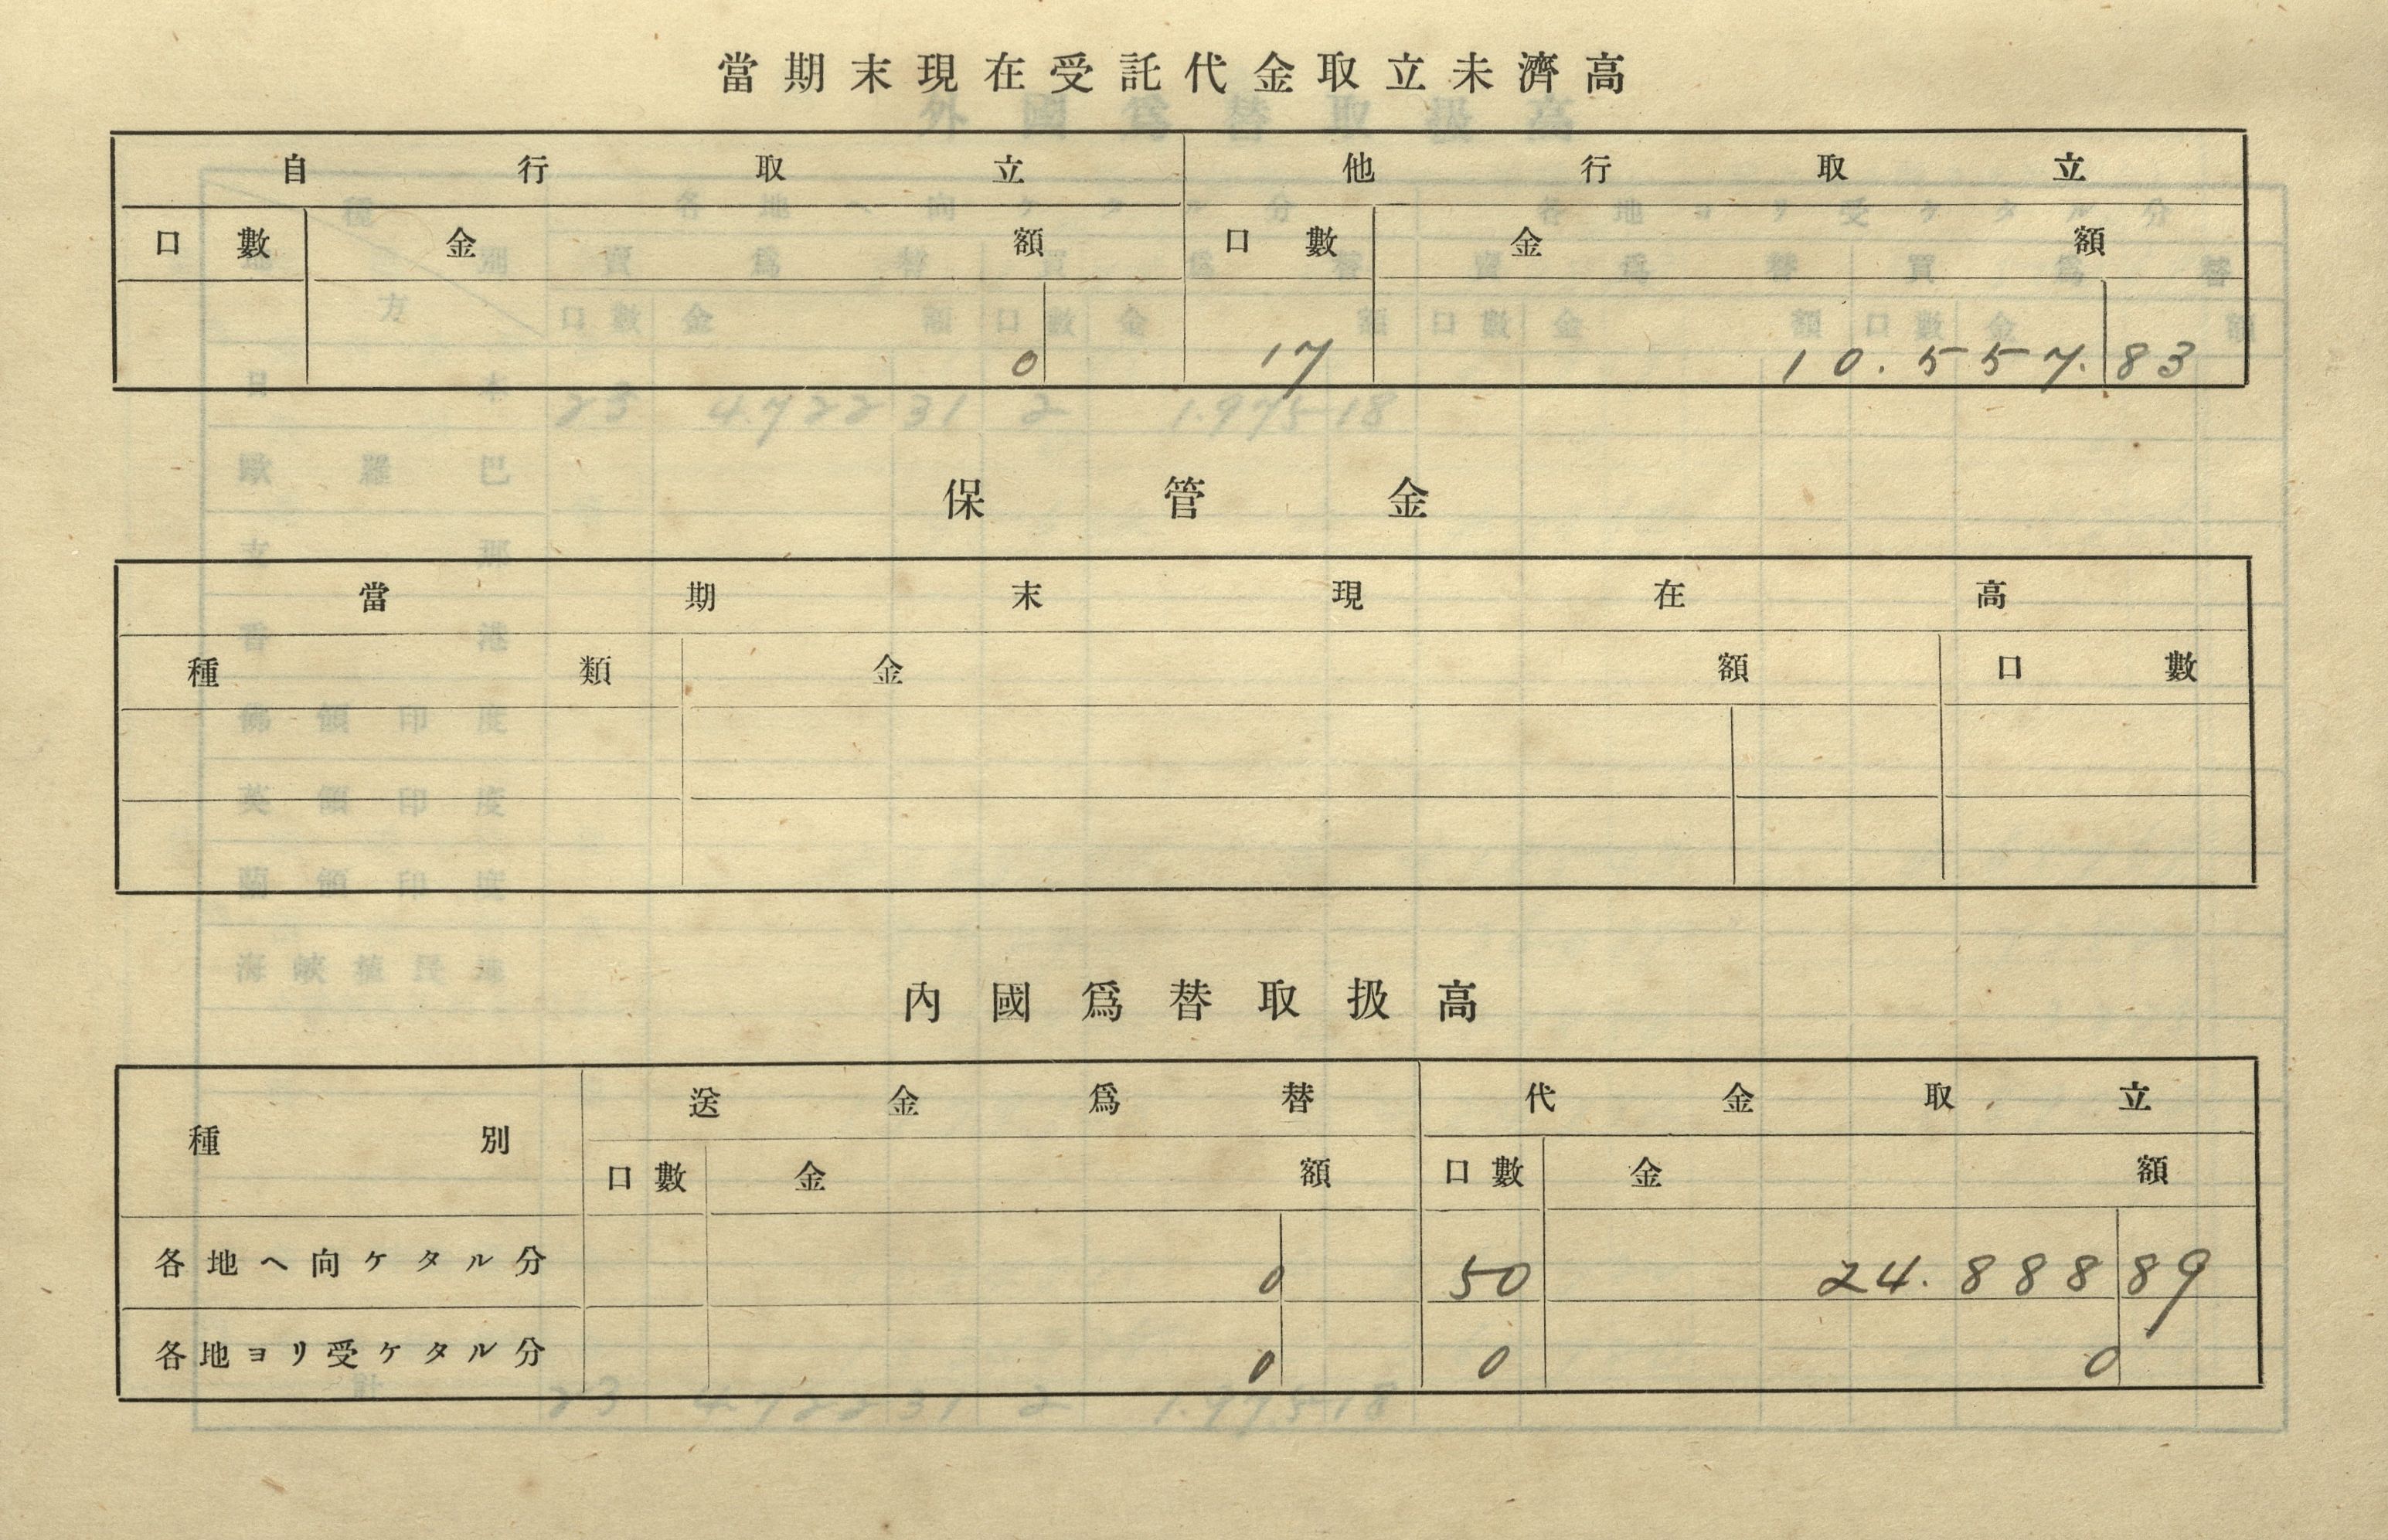 當期末現在受託代金取立未濟高
自行取立 他行取立
口數 金額 口數 金額
0 17 10.557.83
保管金
當期末現在高
種類 金額 口數
內國爲替取扱高
種別 送金爲替 代金取立
口數 金額 口數 金額
各地ヘ向ケタル分 0 50 24.888 89
各地ヨリ受ケタル分 0 0 0